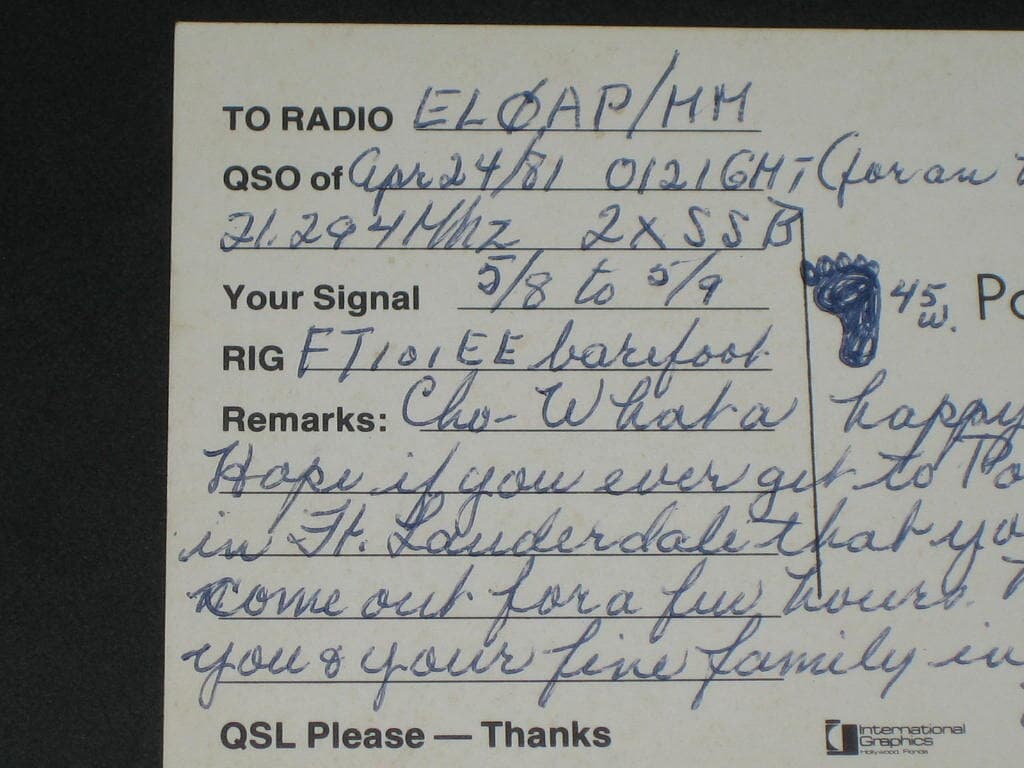 TO RADIO ELØAP/MM
QSO of Apr 24/81 0121GMT (for an
21.294Mhz 2x SSB
Your Signal 5/8 to 5/9
45 w.
RIG FT101EE barefoot
Remarks: Cho- What a happy
Hope if you ever get to Po
in Ft. Lauderdale that yo
come out for a few hours.
you & your fine family in
QSL Please — Thanks
International
Graphics
Hollywood, Florida